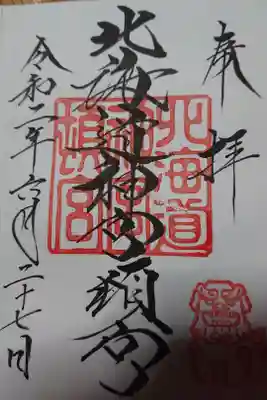 奉拝
北海道神宮頓宮
令和二年六月二十七日
北海道
神宮
頓宮